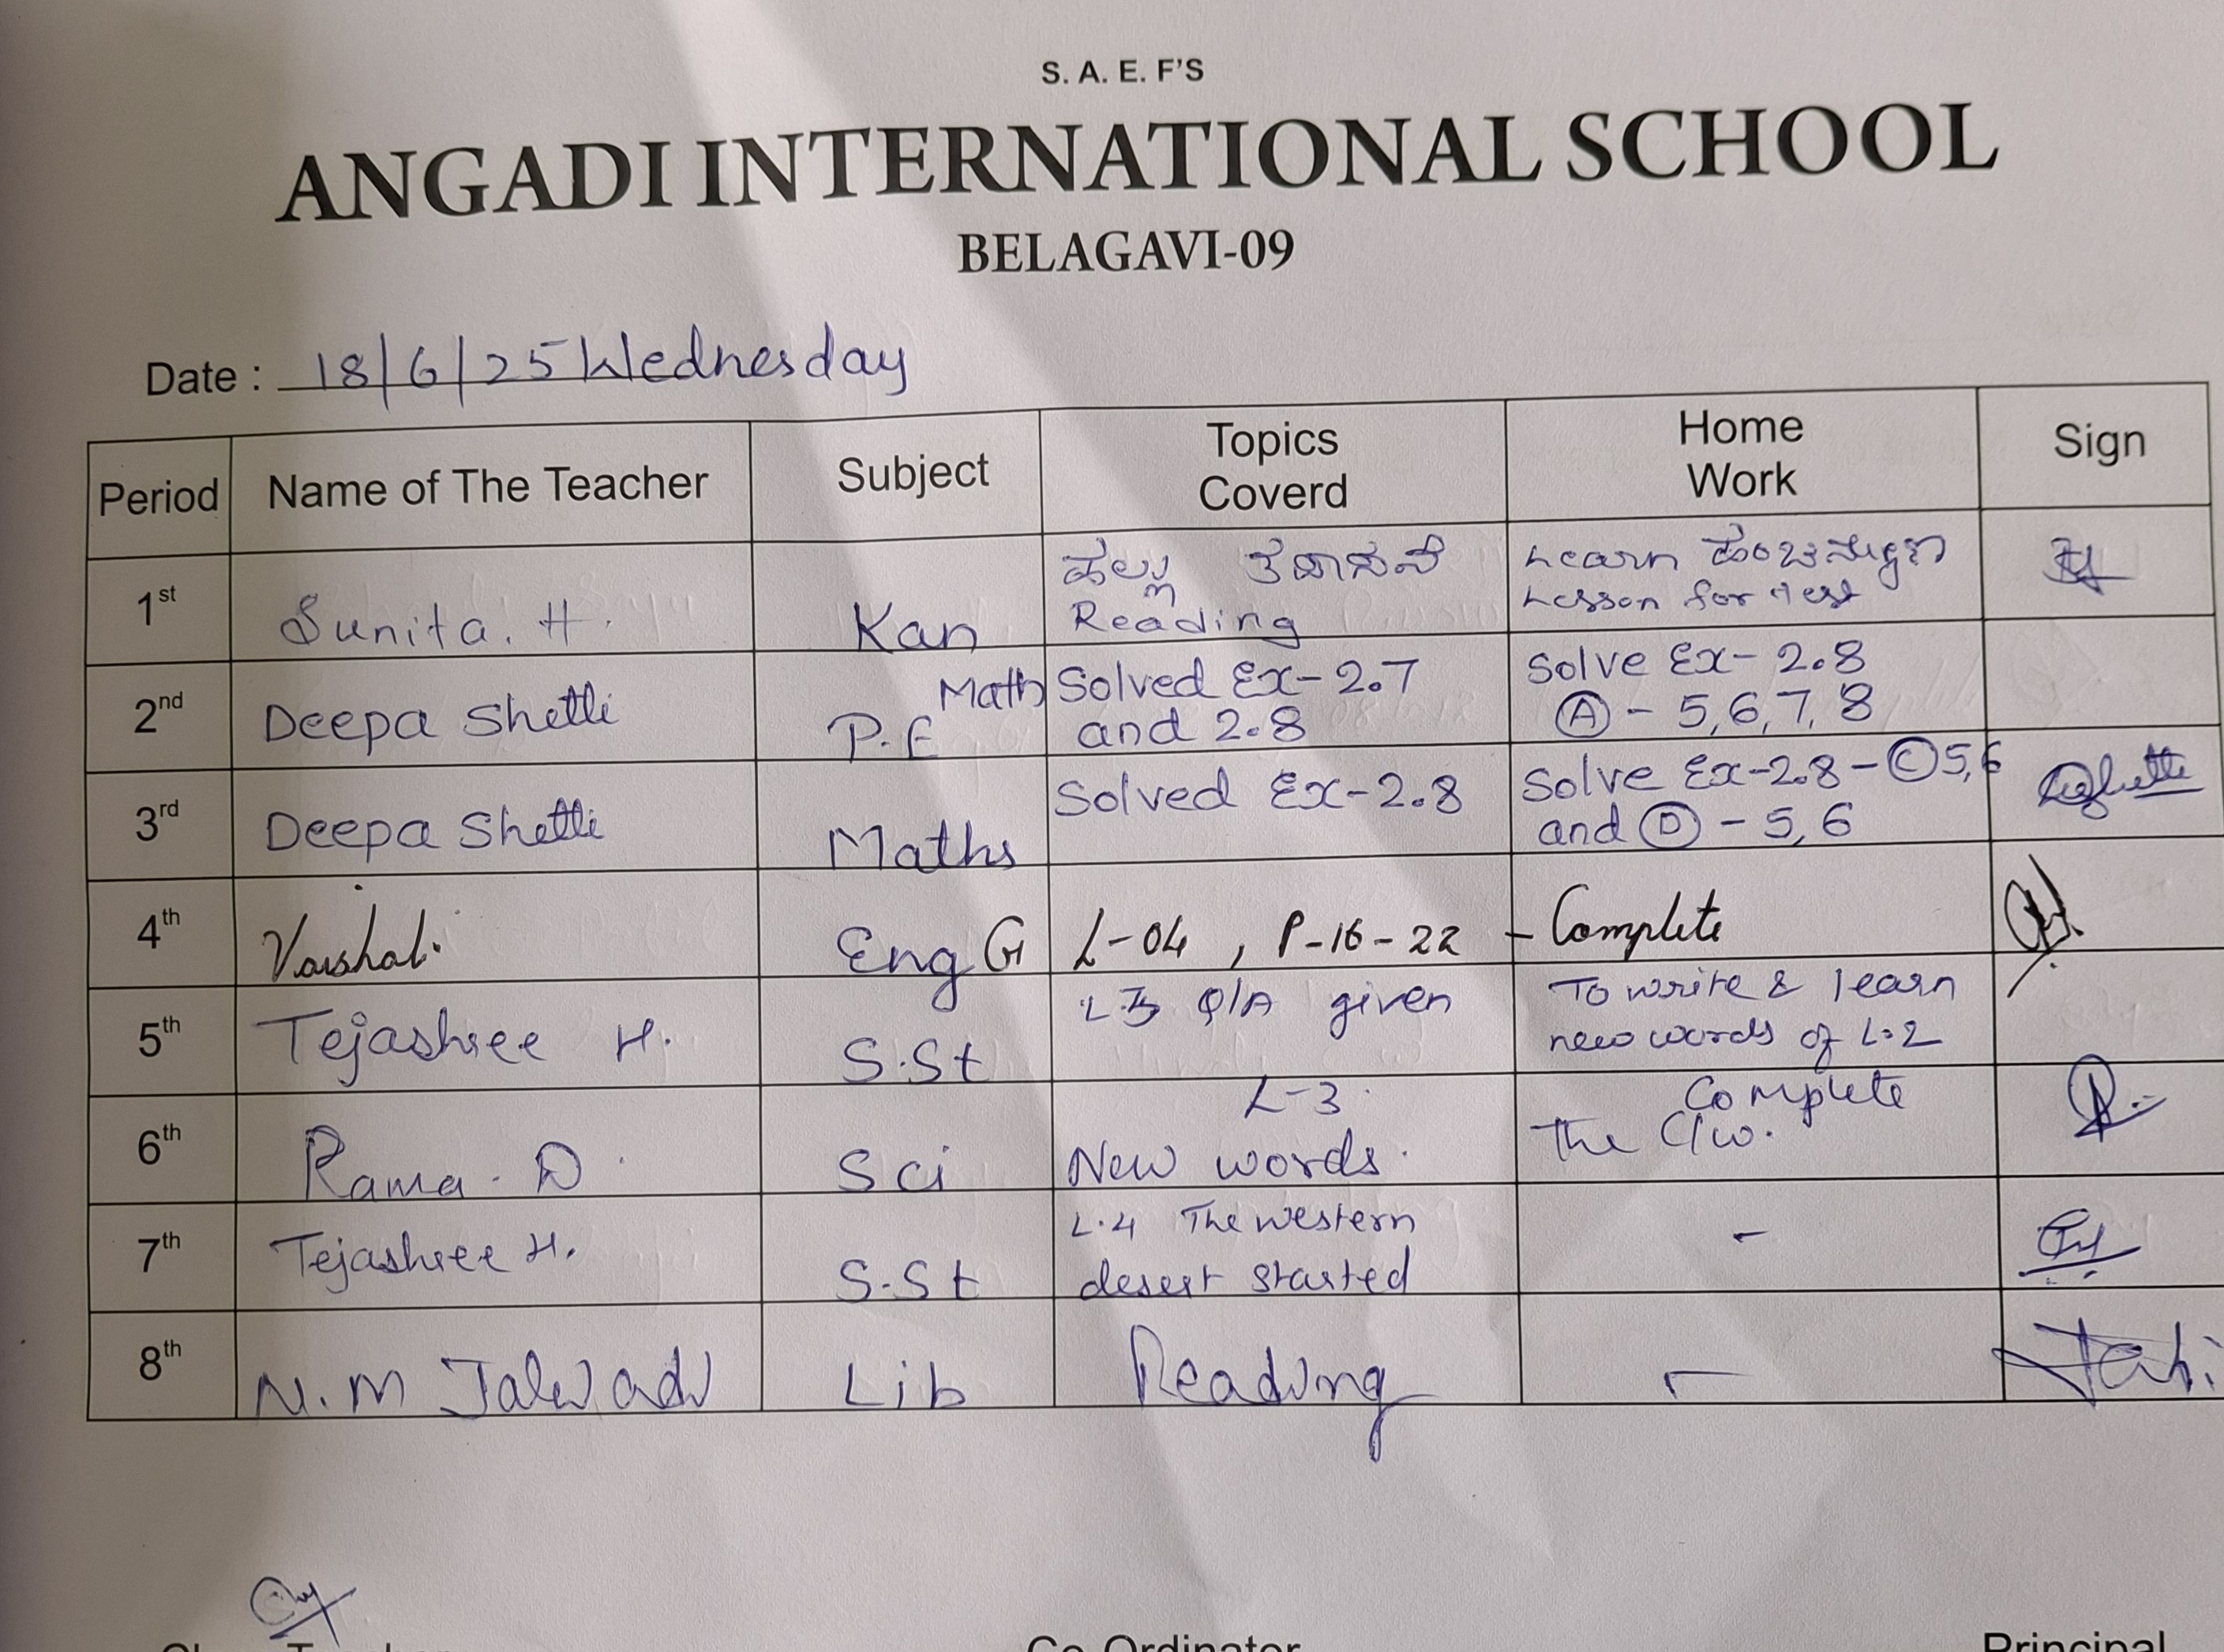 S. A. E. F'S
ANGADI INTERNATIONAL SCHOOL
BELAGAVI-09
Date : 18/6/25 Wednesday
Period Name of The Teacher Subject Topics Coverd Home Work Sign
1st Sunita. H. Kan ಹಲ್ಲು Reading Learn Lesson for test
2nd Deepa Shetti P.E Math Solved Ex-2.7 and 2.8 Solve Ex-2.8 Ⓐ - 5,6,7,8
3rd Deepa Shetti Maths Solved Ex-2.8 Solve Ex-2.8-Ⓒ5,6 and Ⓓ - 5,6
4th Vaishali Eng G L-04 , P-16-22 - Complete
5th Tejashree H. S.St Q/A given To write & learn new words of L.2
6th Rama. D. Sci L-3. New words. Complete The C/w.
7th Tejashree H. S.St L.4 The western desert started -
8th N.M Jalwadi Lib Reading -
Co-Ordinator Principal